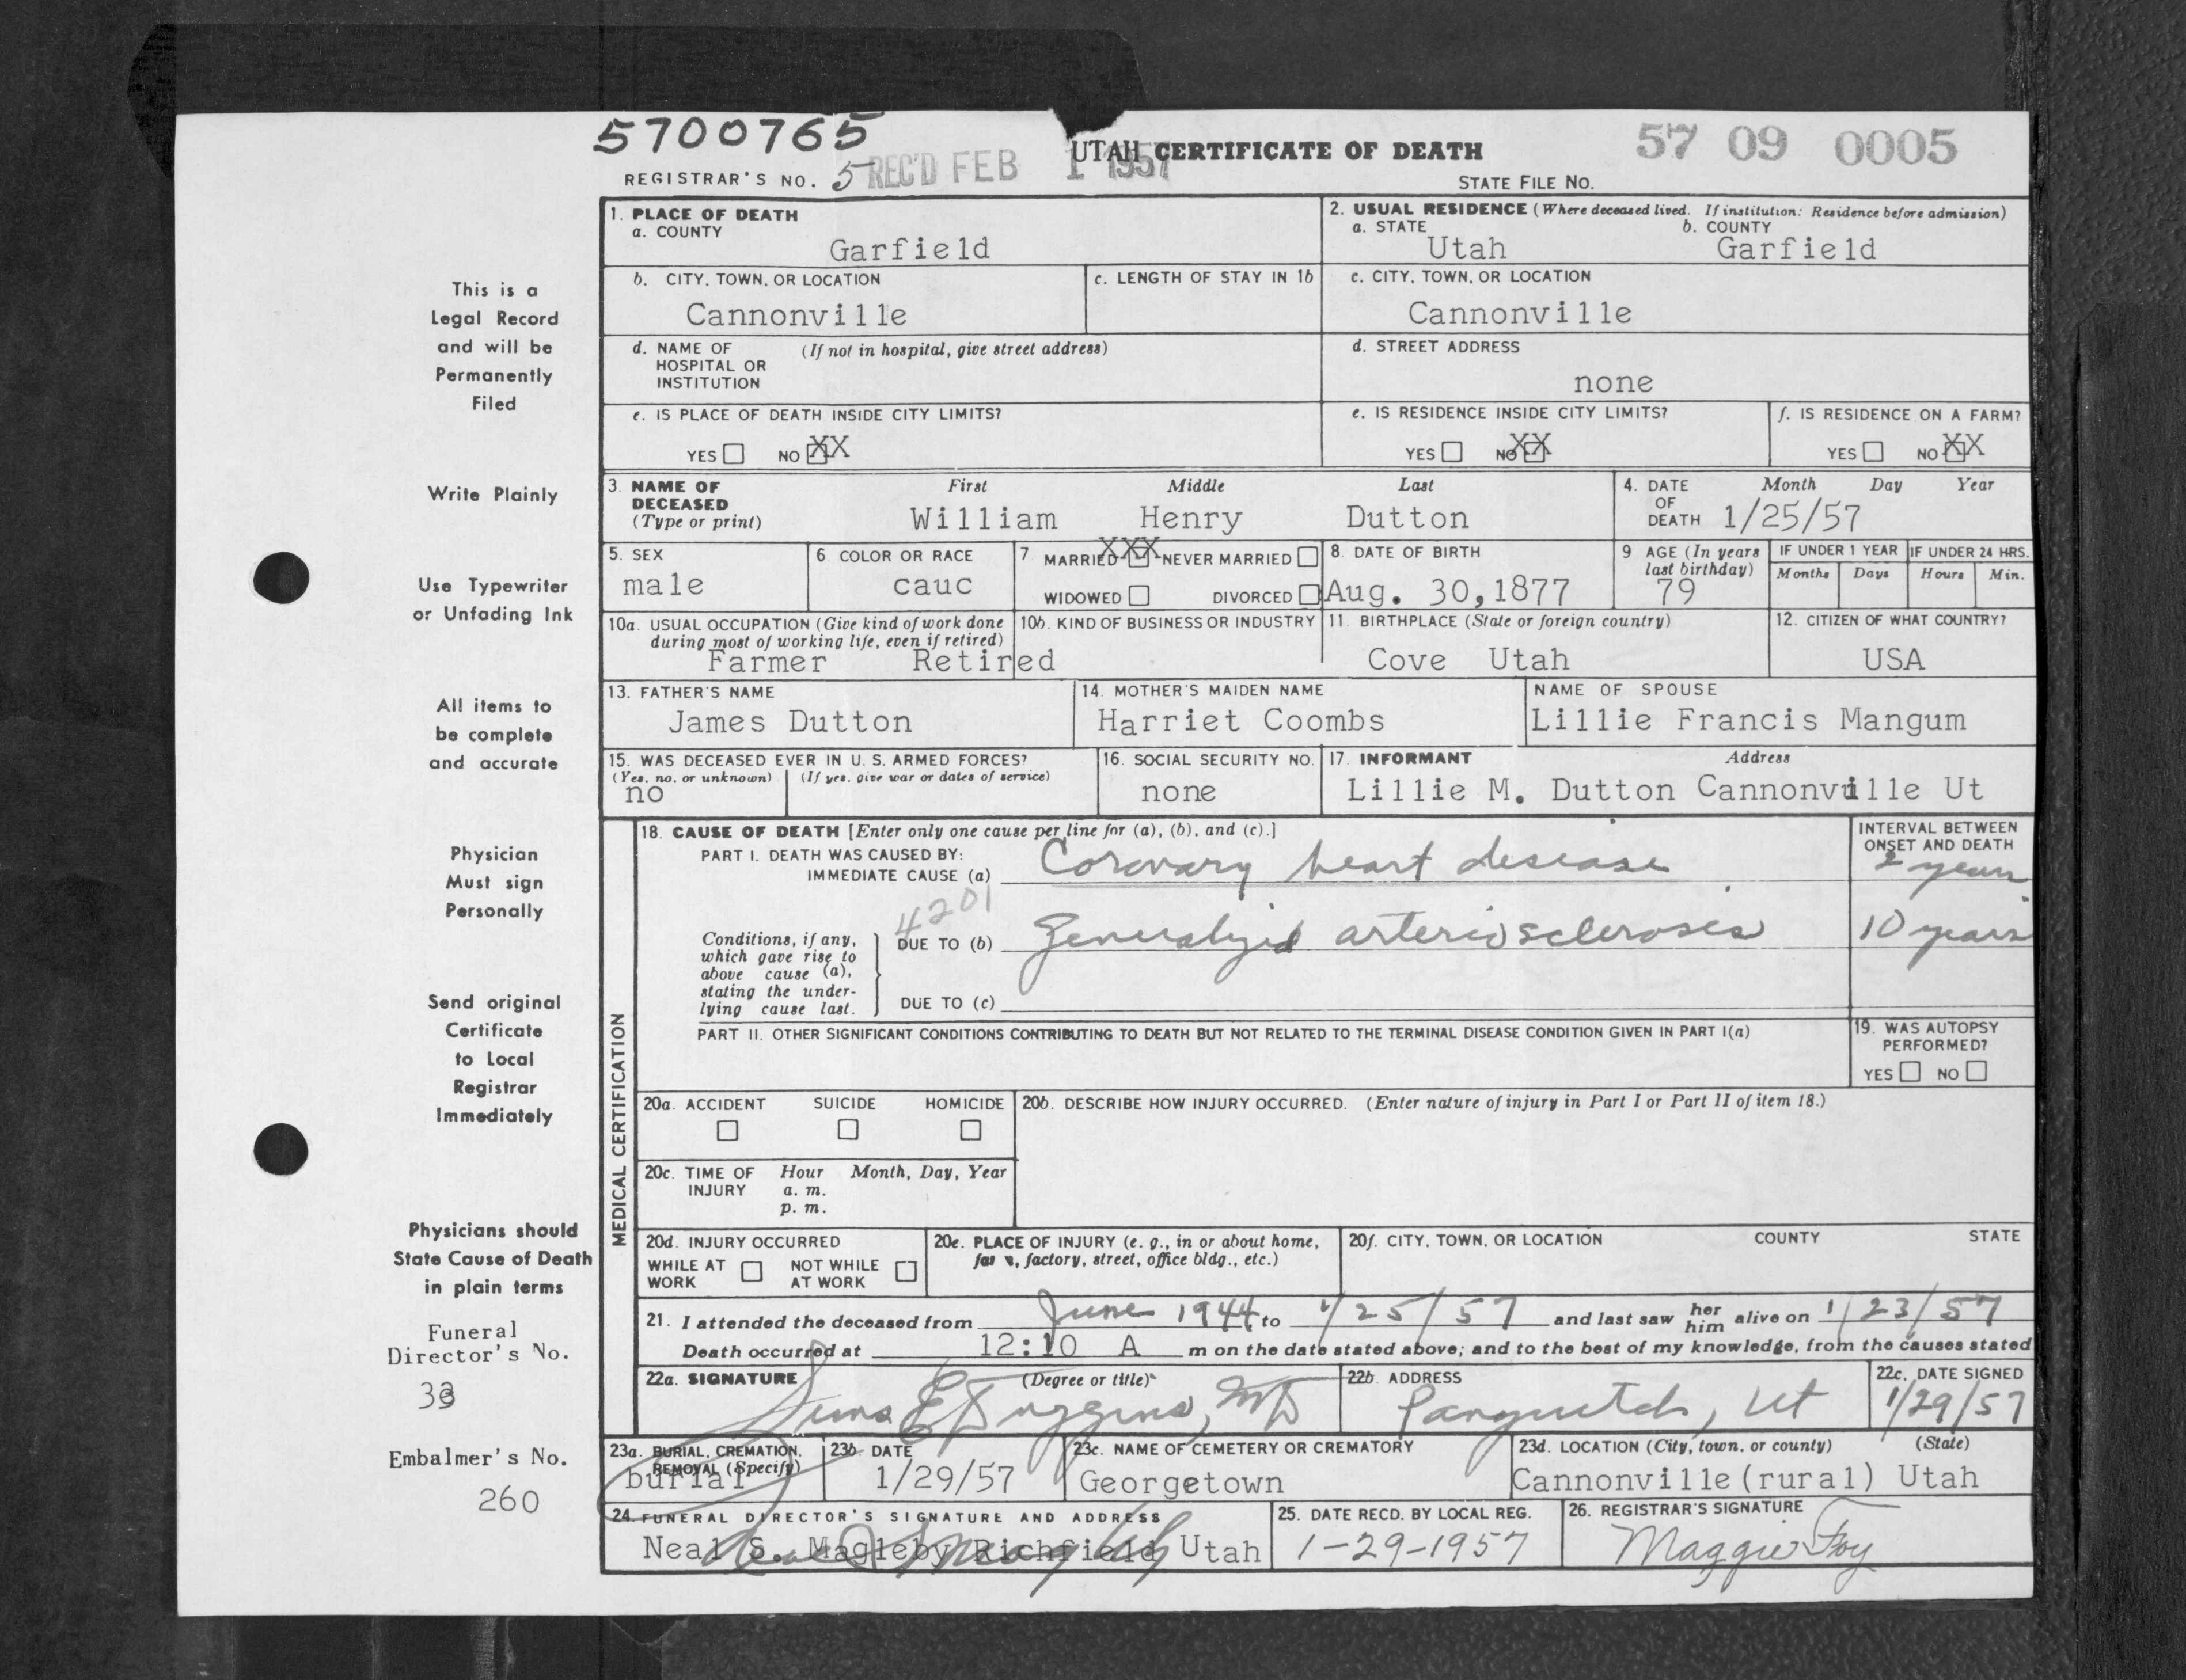 5700765
UTAH CERTIFICATE OF DEATH
57 09 0005
REGISTRAR'S NO. 5
REC'D FEB 1 1957
STATE FILE NO.
This is a
Legal Record
and will be
Permanently
Filed
Write Plainly
Use Typewriter
or Unfading Ink
All items to
be complete
and accurate
Physician
Must sign
Personally
Send original
Certificate
to Local
Registrar
Immediately
Physicians should
State Cause of Death
in plain terms
Funeral
Director's No.
Embalmer's No.
260
1. PLACE OF DEATH
a. COUNTY
Garfield
2. USUAL RESIDENCE (Where deceased lived. If institution: Residence before admission)
a. STATE b. COUNTY
Utah Garfield
b. CITY, TOWN, OR LOCATION
Cannonville
c. LENGTH OF STAY IN 1b
c. CITY, TOWN, OR LOCATION
Cannonville
d. NAME OF (If not in hospital, give street address)
HOSPITAL OR
INSTITUTION
d. STREET ADDRESS
none
e. IS PLACE OF DEATH INSIDE CITY LIMITS?
YES NO XX
e. IS RESIDENCE INSIDE CITY LIMITS?
YES NO XX
f. IS RESIDENCE ON A FARM?
YES NO XX
3. NAME OF First Middle Last
DECEASED
(Type or print) William Henry Dutton
4. DATE Month Day Year
OF
DEATH 1/25/57
5. SEX
male
6. COLOR OR RACE
cauc
7 MARRIED XXX NEVER MARRIED
WIDOWED DIVORCED
8. DATE OF BIRTH
Aug. 30,1877
9 AGE (In years
last birthday)
79
IF UNDER 1 YEAR IF UNDER 24 HRS.
Months Days Hours Min.
10a. USUAL OCCUPATION (Give kind of work done
during most of working life, even if retired)
Farmer Retired
10b. KIND OF BUSINESS OR INDUSTRY
11. BIRTHPLACE (State or foreign country)
Cove Utah
12. CITIZEN OF WHAT COUNTRY?
USA
13. FATHER'S NAME
James Dutton
14. MOTHER'S MAIDEN NAME
Harriet Coombs
NAME OF SPOUSE
Lillie Francis Mangum
15. WAS DECEASED EVER IN U. S. ARMED FORCES?
(Yes, no, or unknown) (If yes, give war or dates of service)
no
16. SOCIAL SECURITY NO.
none
17. INFORMANT Address
Lillie M. Dutton Cannonville Ut
MEDICAL CERTIFICATION
18. CAUSE OF DEATH [Enter only one cause per line for (a), (b), and (c).]
INTERVAL BETWEEN
ONSET AND DEATH
PART I. DEATH WAS CAUSED BY:
IMMEDIATE CAUSE (a) Coronary heart disease 2 years
4201
Conditions, if any,
which gave rise to
above cause (a),
stating the under-
lying cause last.
DUE TO (b) Generalized arteriosclerosis 10 years
DUE TO (c)
PART II. OTHER SIGNIFICANT CONDITIONS CONTRIBUTING TO DEATH BUT NOT RELATED TO THE TERMINAL DISEASE CONDITION GIVEN IN PART I(a)
19. WAS AUTOPSY
PERFORMED?
YES NO
20a. ACCIDENT SUICIDE HOMICIDE
20b. DESCRIBE HOW INJURY OCCURRED. (Enter nature of injury in Part I or Part II of item 18.)
20c. TIME OF Hour Month, Day, Year
INJURY a. m.
p. m.
20d. INJURY OCCURRED
WHILE AT NOT WHILE
WORK AT WORK
20e. PLACE OF INJURY (e. g., in or about home,
factory, street, office bldg., etc.)
20f. CITY, TOWN, OR LOCATION COUNTY STATE
21. I attended the deceased from June 1944 to 1/25/57 and last saw her him alive on 1/23/57
Death occurred at 12:10 A m on the date stated above; and to the best of my knowledge, from the causes stated
22a. SIGNATURE (Degree or title)
Sims E Duggins, MD
22b. ADDRESS
Panguitch, Ut
22c. DATE SIGNED
1/29/57
23a. BURIAL, CREMATION,
REMOVAL (Specify)
burial
23b. DATE
1/29/57
23c. NAME OF CEMETERY OR CREMATORY
Georgetown
23d. LOCATION (City, town, or county) (State)
Cannonville(rural) Utah
24. FUNERAL DIRECTOR'S SIGNATURE AND ADDRESS
Neal S. Magleby Richfield Utah
Neal S Magleby
25. DATE RECD. BY LOCAL REG.
1-29-1957
26. REGISTRAR'S SIGNATURE
Maggie Foy